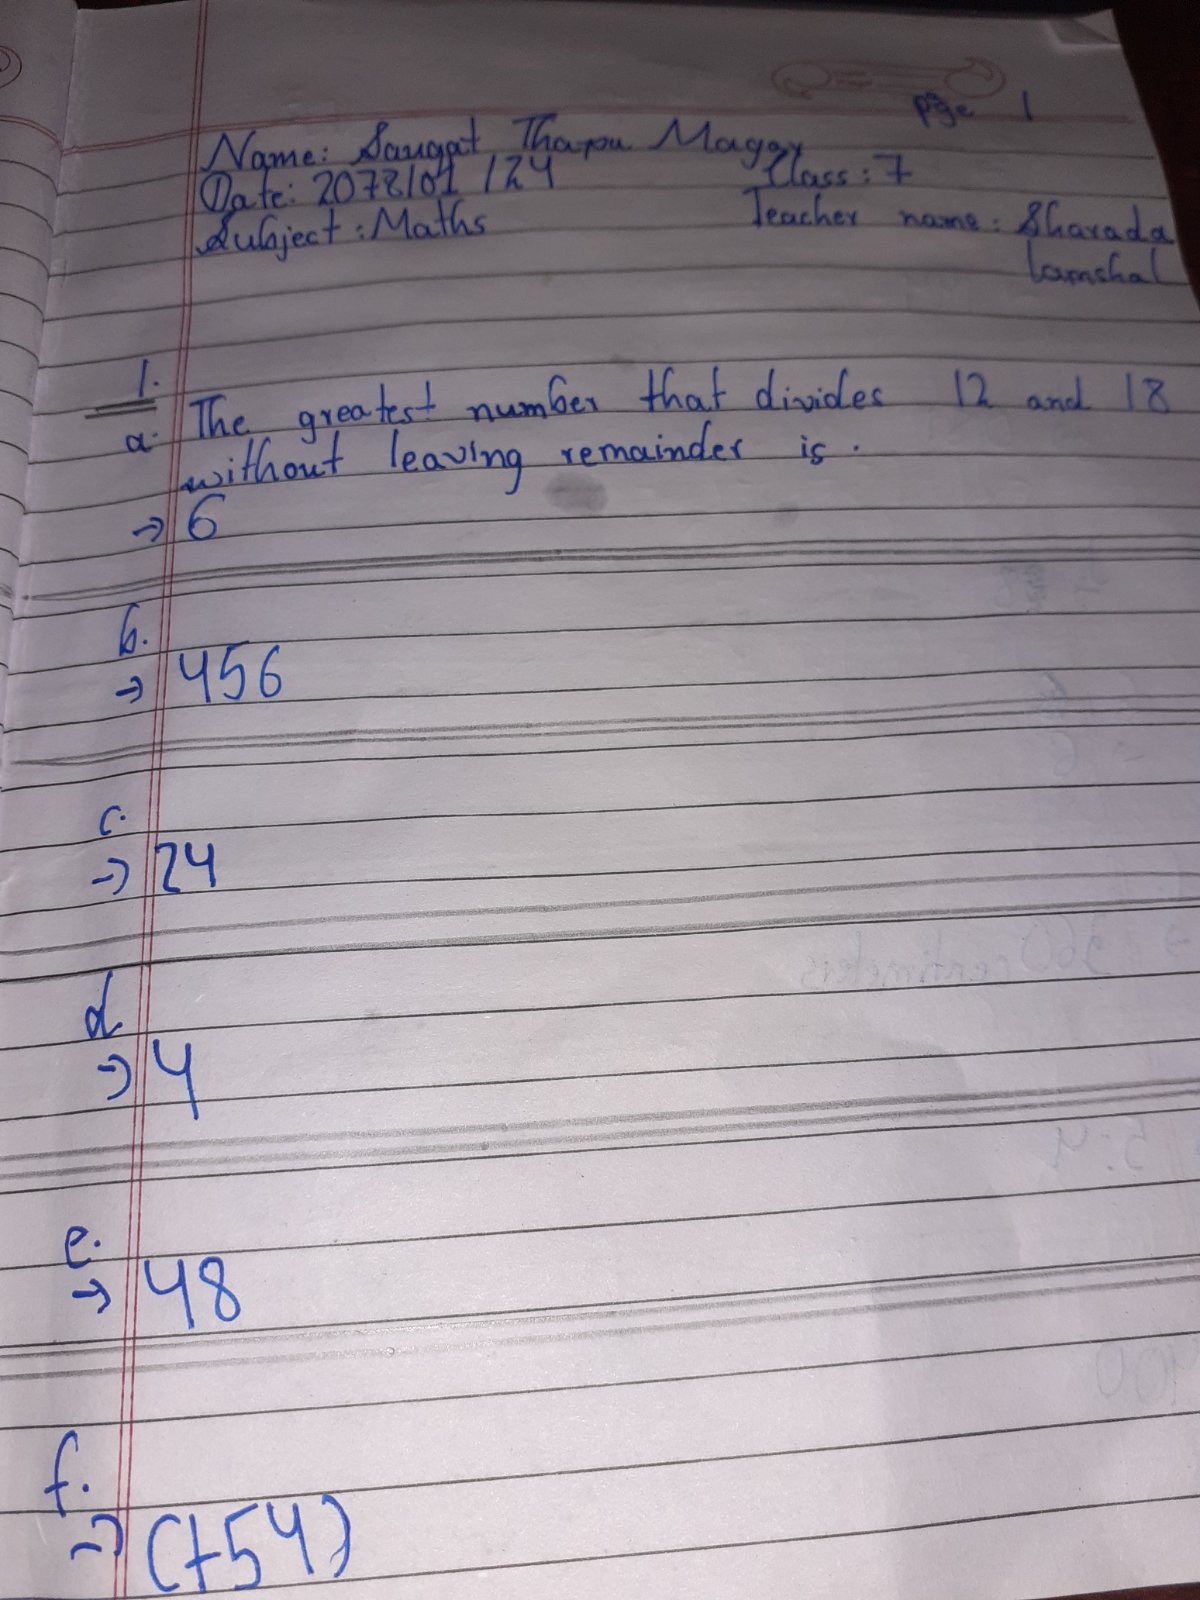 page 1
Name: Saugat Thapa Magar
Date: 2078/01/24 Class: 7
Subject: Maths Teacher name: Sharada
lamshal
1.
a. The greatest number that divides 12 and 18
without leaving remainder is.
→ 6
b.
→ 456
c.
→ 24
d
→ 4
e.
→ 48
f.
→ (+54)